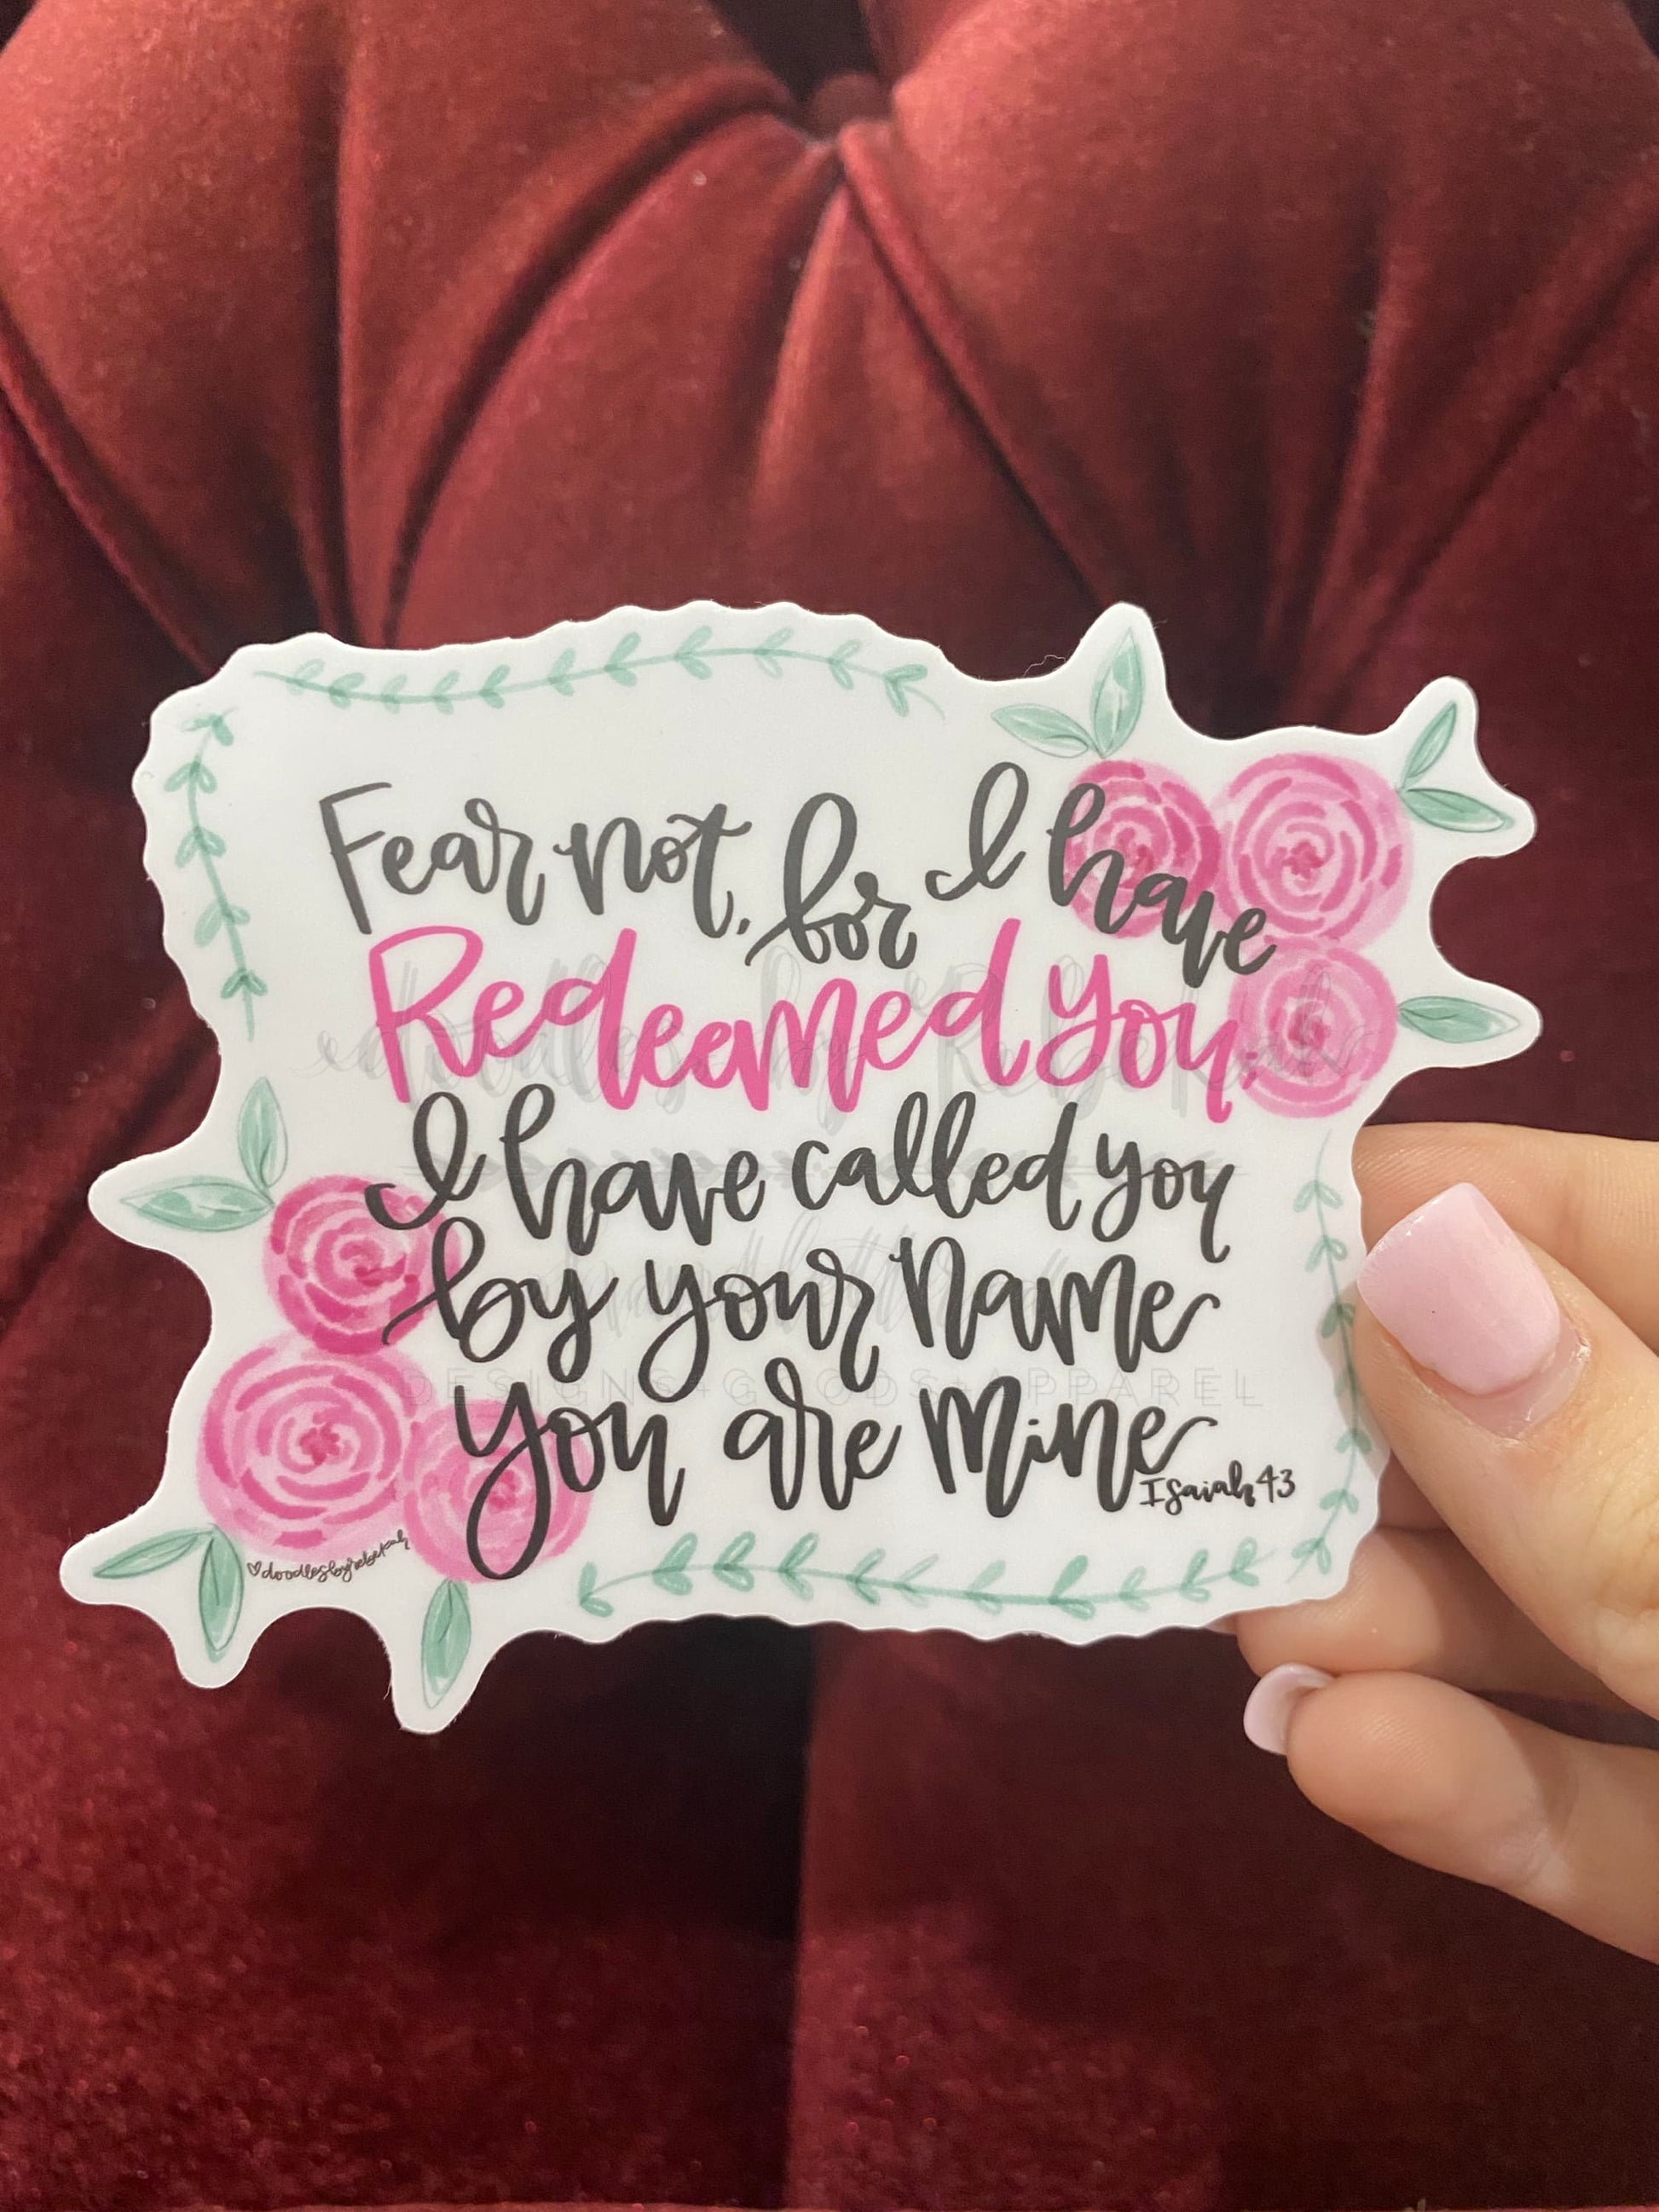 Fear not, for I have
Redeemed you;
I have called you
by your name
you are mine
Isaiah 43
♡doodlesbyrebekah
doodles by Rebekah
hand lettered
DESIGNS+GOODS+APPAREL